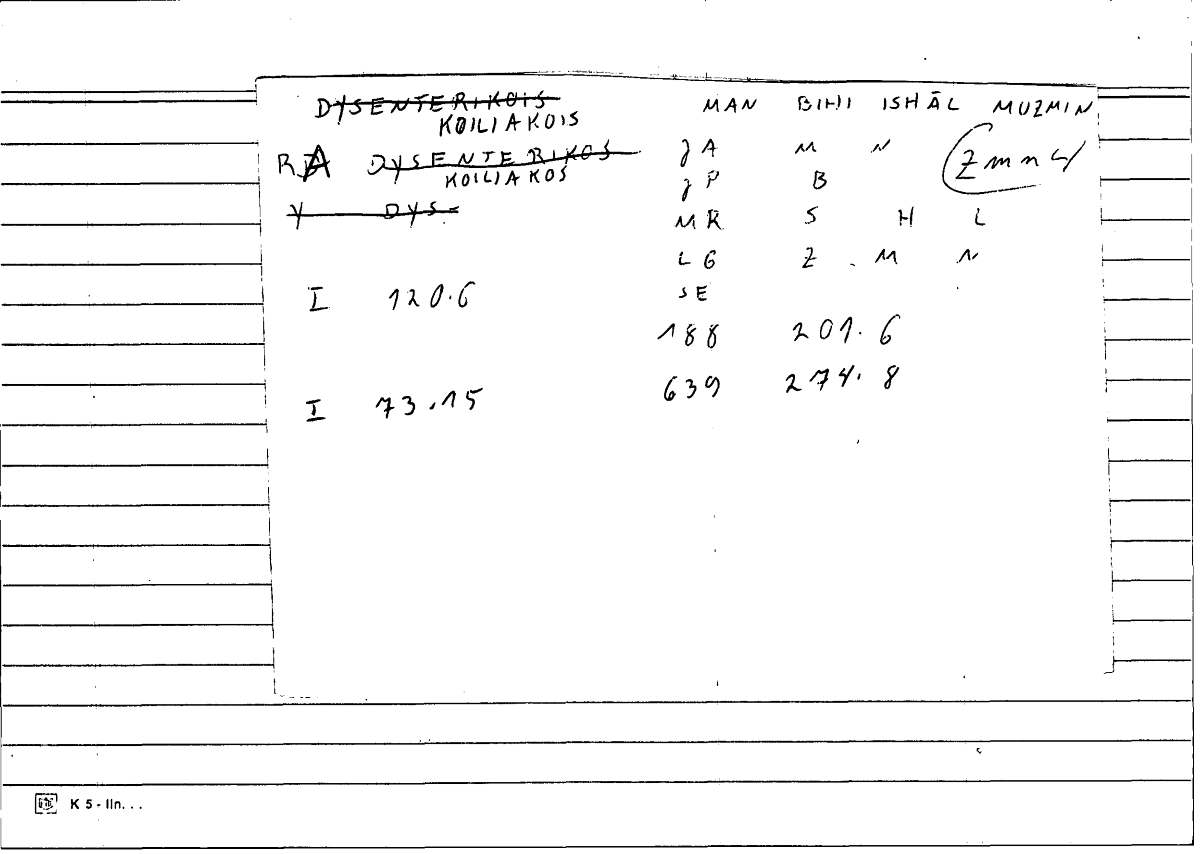 DYSENTERIKOIS MAN BIHI ISHĀL MUZMIN
KOILIAKOIS
RA DYSENTERIKOS JA M N Zmn4
KOILIAKOS JP B
Y DYS- MR S H L
LG Z M N
I 120.6 SE
188 201.6
I 73.15 639 274.8
K 5 - lln. . .